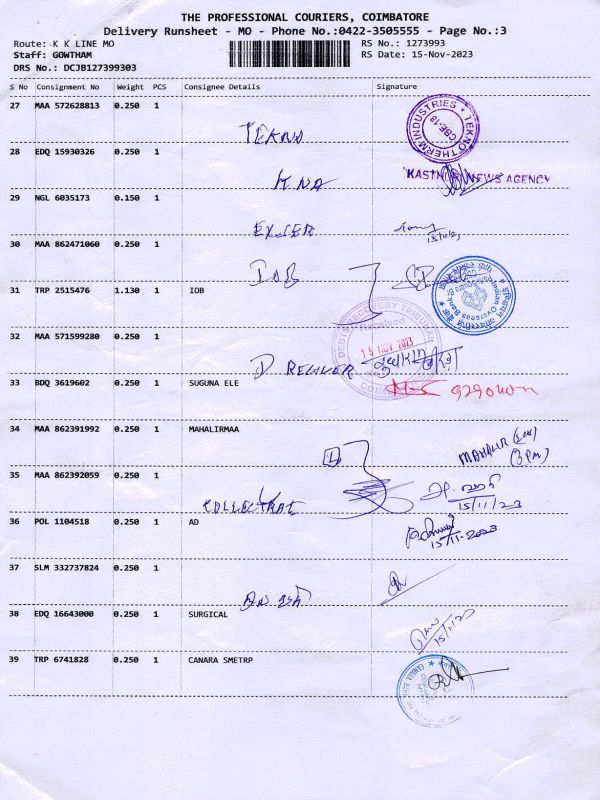 THE PROFESSIONAL COURIERS, COIMBATORE
Delivery Runsheet - MO - Phone No.:0422-3505555 - Page No.:3
Route: K K LINE MO
RS No.: 1273993
Staff: GOWTHAM
RS Date: 15-Nov-2023
DRS No.: DCJB127399303
S No Consignment No Weight PCS Consignee Details Signature
27 MAA 572628813 0.250 1
TEKNO THERM INDUSTRIES CBE-18
TEKNO
28 EDQ 15930326 0.250 1
KNA
NEWS AGENCY
29 NGL 6035173 0.150 1
15/11/23
30 MAA 862471060 0.250 1
IOB
Indian Overseas Bank
31 TRP 2515476 1.130 1 IOB
DEBTS RECOVERY TRIBUNAL
Received
15 NOV 2023
32 MAA 571599280 0.250 1
33 BDQ 3619602 0.250 1 SUGUNA ELE
34 MAA 862391992 0.250 1 MAHALIRMAA
MAHALIR
35 MAA 862392059 0.250 1
15/11/23
36 POL 1104518 0.250 1 AD
15/11-2023
37 SLM 332737824 0.250 1
38 EDQ 16643000 0.250 1 SURGICAL
15/11/23
39 TRP 6741828 0.250 1 CANARA SMETRP